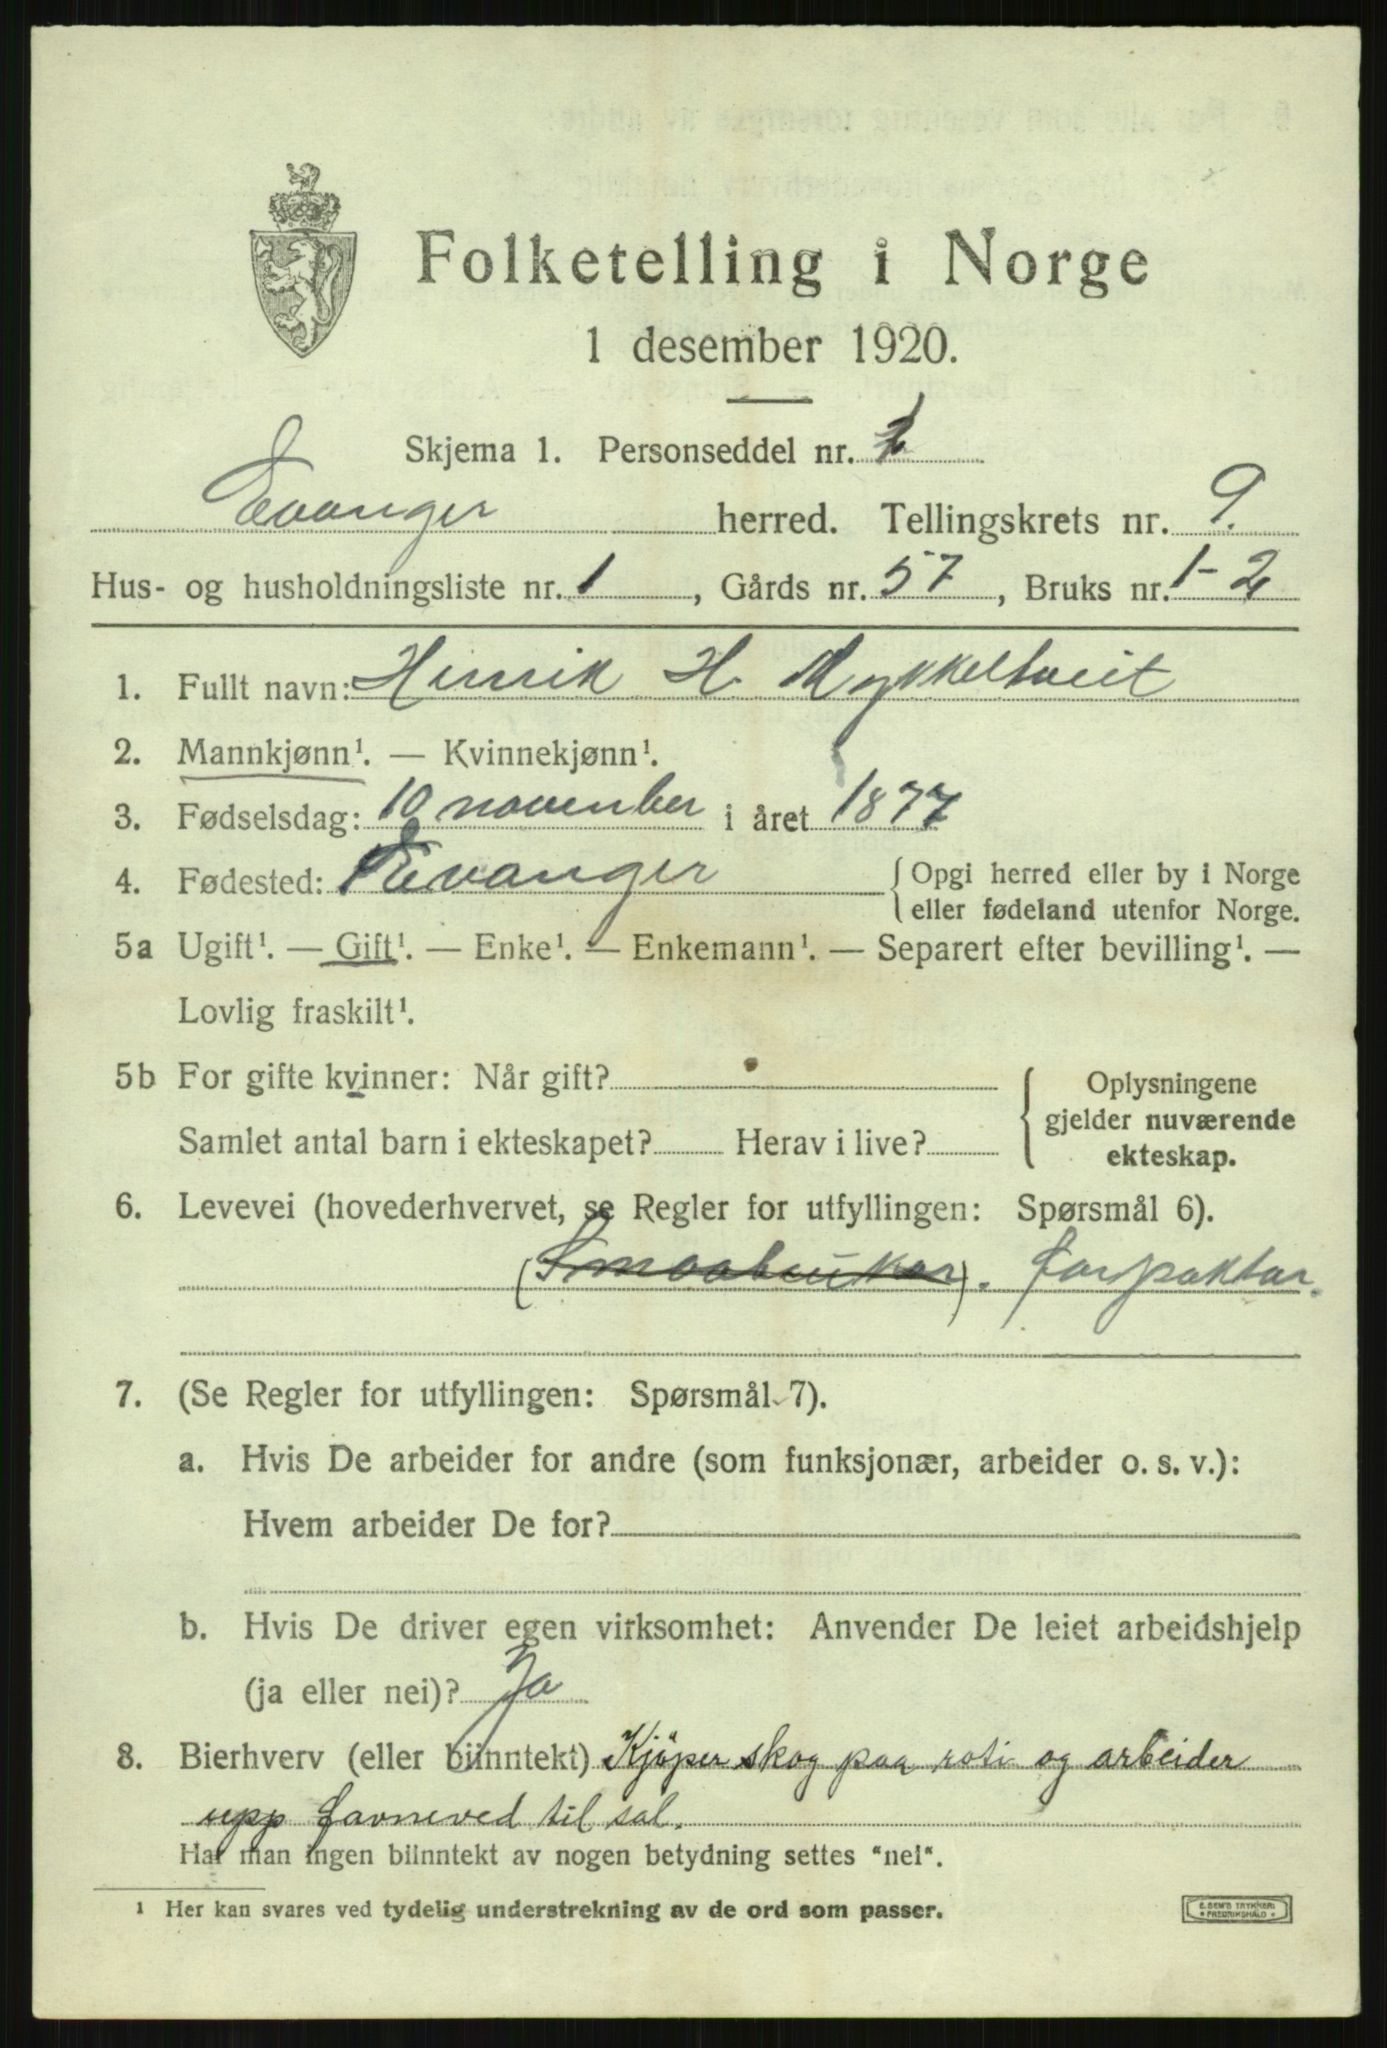 Folketelling i Norge
1 desember 1920.
Skjema 1. Personseddel nr.
Evanger herred. Tellingskrets nr. 9.
Hus- og husholdningsliste nr. 1, Gårds nr. 57, Bruks nr. 1-2
1. Fullt navn: Henrik H. Mykkeltveit
2. Mannkjønn¹. — Kvinnekjønn¹.
3. Fødselsdag: 10 november i året 1877
4. Fødested: Evanger { Opgi herred eller by i Norge
eller fødeland utenfor Norge.
5a Ugift¹. — Gift¹. — Enke¹. — Enkemann¹. — Separert efter bevilling¹. —
Lovlig fraskilt¹.
5b For gifte kvinner: Når gift? { Oplysningene
gjelder nuværende
Samlet antal barn i ekteskapet? Herav i live? ekteskap.
6. Levevei (hovederhvervet, se Regler for utfyllingen: Spørsmål 6).
(Smaabruker). forpaktar.
7. (Se Regler for utfyllingen: Spørsmål 7).
a. Hvis De arbeider for andre (som funksjonær, arbeider o. s. v.):
Hvem arbeider De for?
b. Hvis De driver egen virksomhet: Anvender De leiet arbeidshjelp
(ja eller nei)? Ja
8. Bierhverv (eller biinntekt) Kjöper skog paa roti og arbeider
upp favneved til sal.
Har man ingen biinntekt av nogen betydning settes "nei".
¹ Her kan svares ved tydelig understrekning av de ord som passer.
E. SEM'S TRYKKERI
FREDRIKSHALD